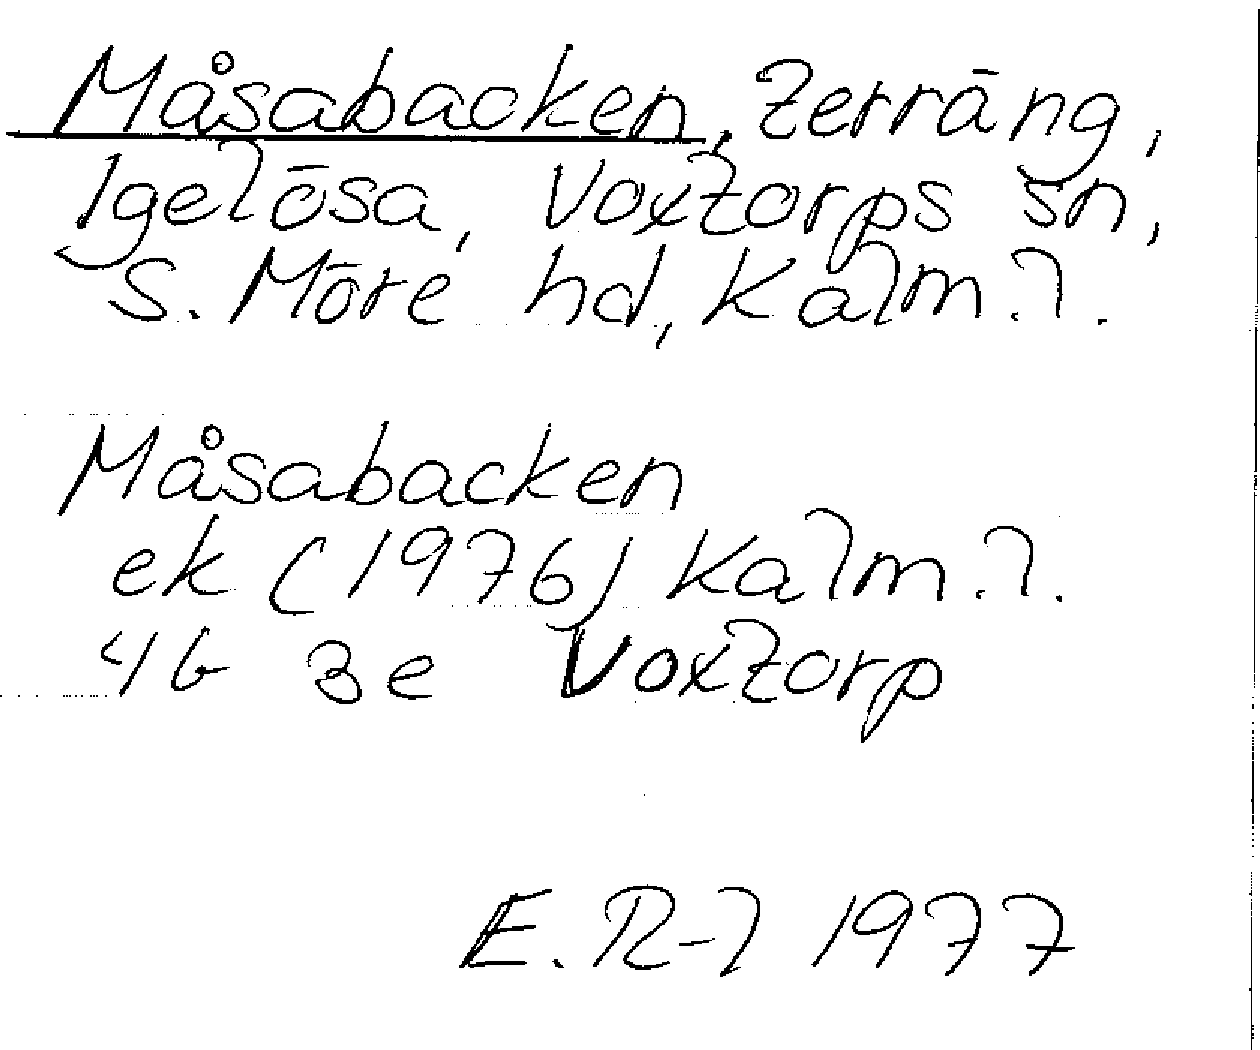 Måsabacken, terräng,
Igelösa, Voxtorps sn,
S. Möre hd, Kalm. l.
Måsabacken
ek (1976) Kalm. l.
4G 3e Voxtorp
E. R-l 1977